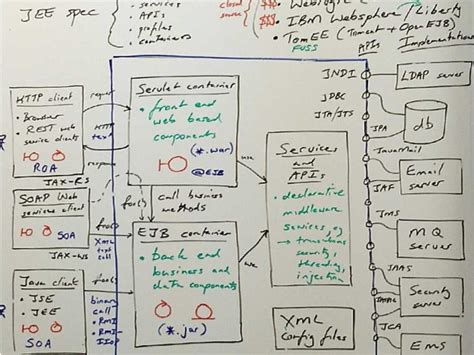 JEE spec
• services
• APIs
• profiles
• containers
closed
source
$$$
$$$
• IBM Websphere / Liberty
• TomEE (Tomcat + OpenEJB)
FUSS
APIs
Implementations
HTTP client
• Browser
• REST web
service clients
ROA
JAX-RS
SOAP Web
services client
SOA
JAX-WS
Java client
• JSE
• JEE
SOA
HTTP
text
foo()
XML
text
call
foo()
binary
call
• RMI
• RMI-
IIOP
Servlet container
• front end
web based
components
(*.war)
@EJB
foo()
call business
methods
EJB container
• back end
business and
data components
(*.jar)
use
use
Services
and
APIs
• declarative
middleware
services, eg
→ transactions
security,
threading,
injection
XML
config files
JNDI
JDBC
JTA/JTS
JPA
JavaMail
JAF
JMS
JAAS
JCA
LDAP server
db
Email
server
MQ
server
Security
server
EMS